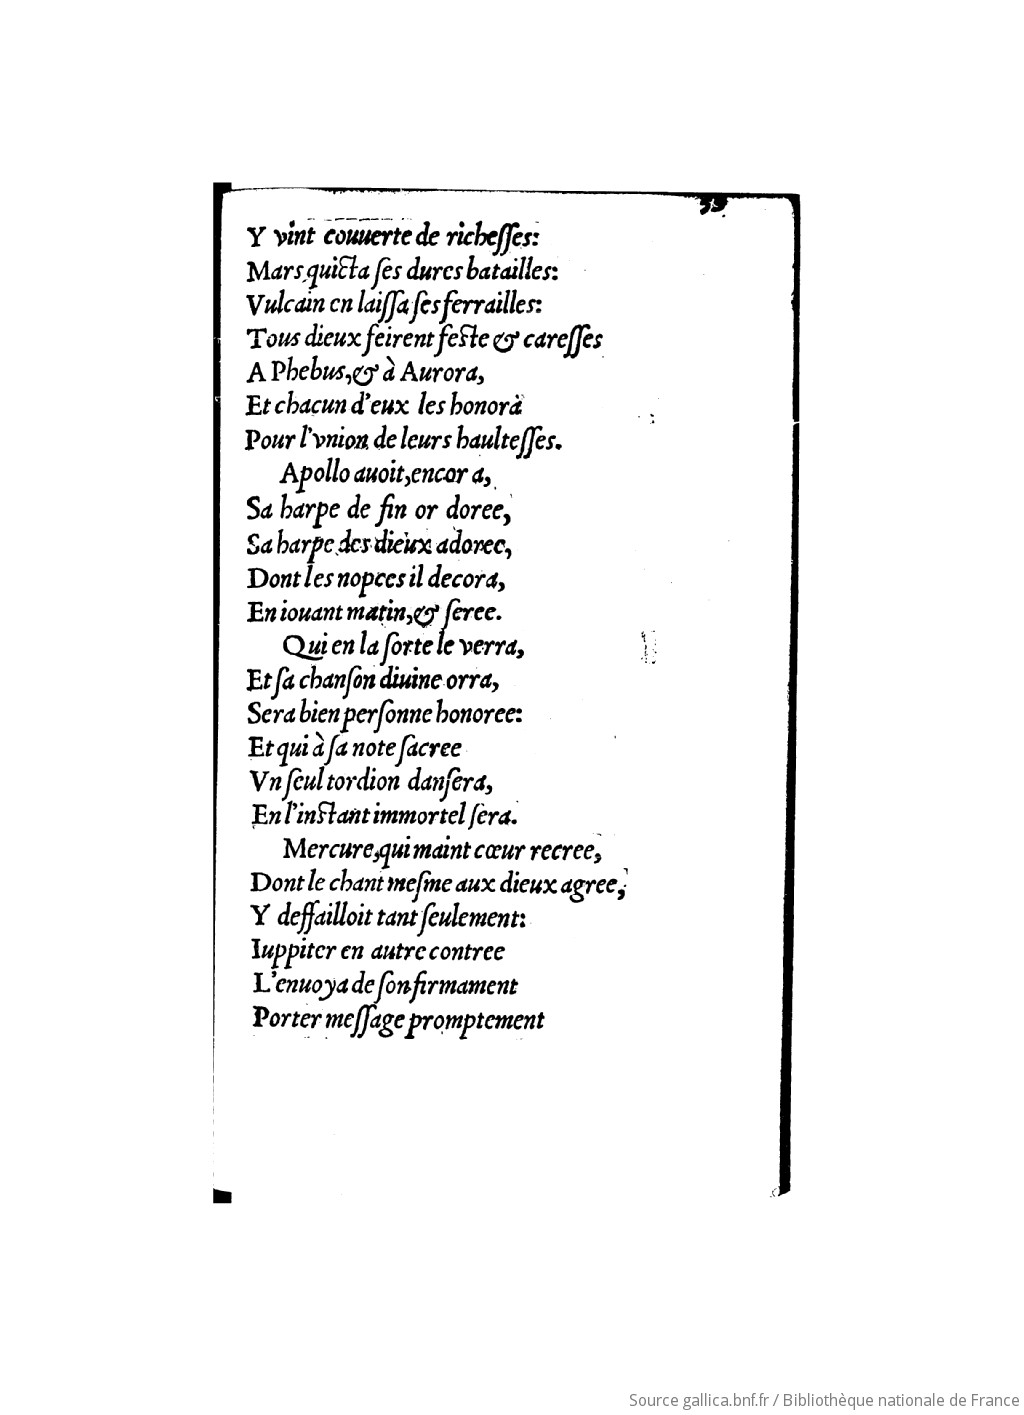 Y vint couuerte de richeſſes:
Mars quicta ſes dures batailles:
Vulcain en laiſſa ſes ferrailles:
Tous dieux feirent feſte & careſſes
A Phebus, & à Aurora,
Et chacun d'eux les honora
Pour l'vnion de leurs haulteſſes.
Apollo auoit, encor a,
Sa harpe de fin or doree,
Sa harpe des dieux adoree,
Dont les nopces il decora,
En iouant matin, & ſeree.
Qui en la ſorte le verra,
Et ſa chanſon diuine orra,
Sera bien perſonne honoree:
Et qui à ſa note ſacree
Vn ſeul tordion danſera,
En l'inſtant immortel ſera.
Mercure, qui maint cœur recree,
Dont le chant meſme aux dieux agree,
Y deffailloit tant ſeulement:
Iuppiter en autre contree
L'enuoya de ſon firmament
Porter meſſage promptement
Source gallica.bnf.fr / Bibliothèque nationale de France